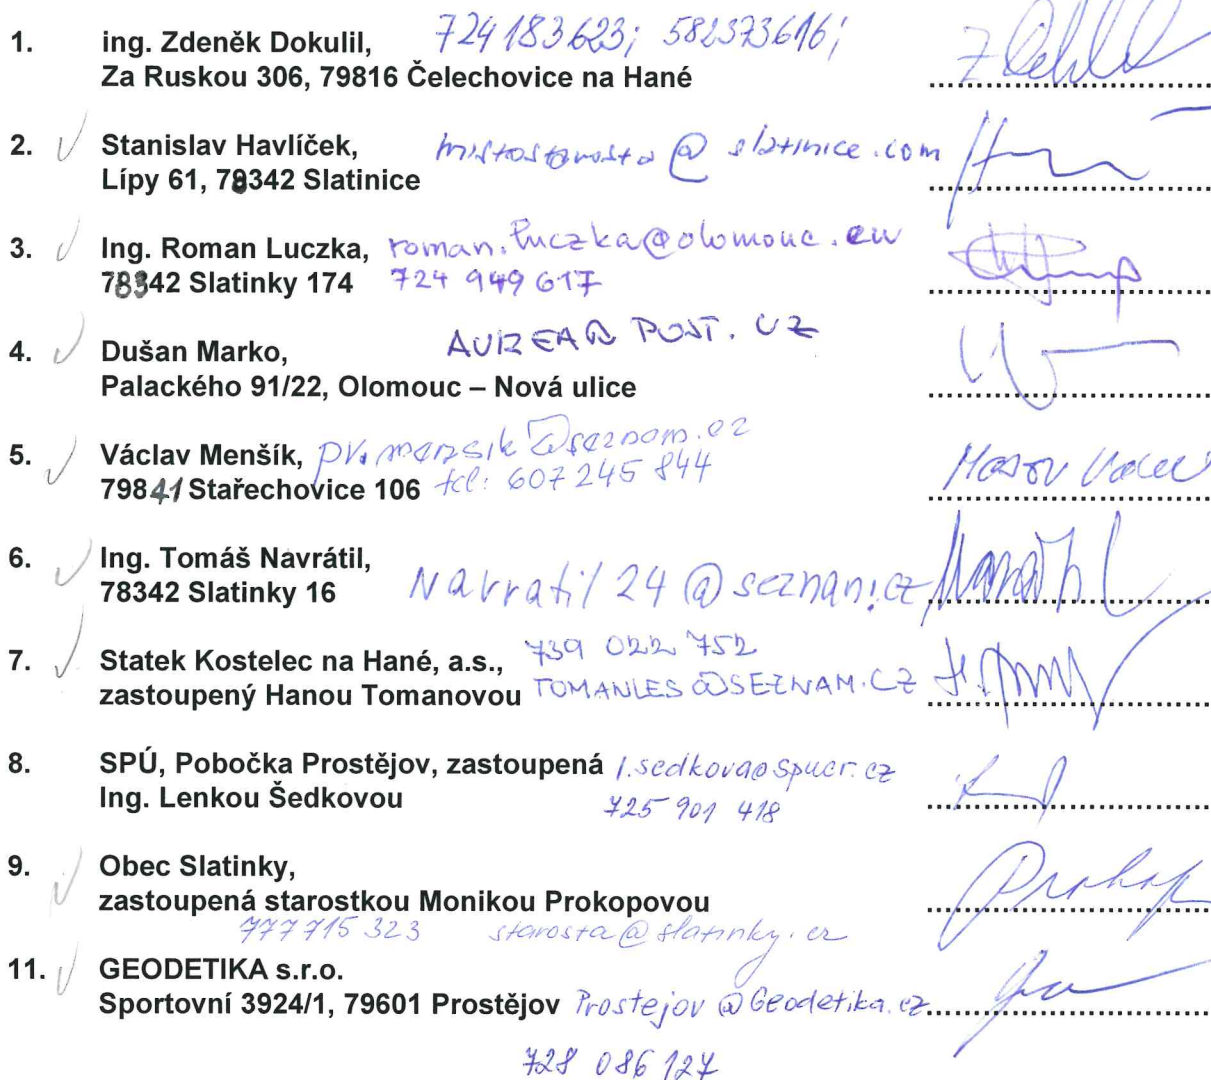 1. ing. Zdeněk Dokulil, 724 183 623; 582373616;
Za Ruskou 306, 79816 Čelechovice na Hané
2. Stanislav Havlíček, mistostarosta@slatinice.com
Lípy 61, 78342 Slatinice
3. Ing. Roman Luczka, roman.luczka@olomouc.eu
78342 Slatinky 174 724 949 617
4. Dušan Marko,
Palackého 91/22, Olomouc – Nová ulice
5. Václav Menšík, pv.mensik@seznam.cz
79841 Stařechovice 106 tel: 607 245 844
6. Ing. Tomáš Navrátil,
78342 Slatinky 16 Navratil24@seznam.cz
7. Statek Kostelec na Hané, a.s., 739 022 752
zastoupený Hanou Tomanovou TOMANLES@SEZNAM.CZ
8. SPÚ, Pobočka Prostějov, zastoupená l.sedkova@spucr.cz
Ing. Lenkou Šedkovou 725 901 418
9. Obec Slatinky,
zastoupená starostkou Monikou Prokopovou Prokop
777 715 323 starosta@slatinky.cz
11. GEODETIKA s.r.o.
Sportovní 3924/1, 79601 Prostějov Prostejov@Geodetika.cz
728 086 127